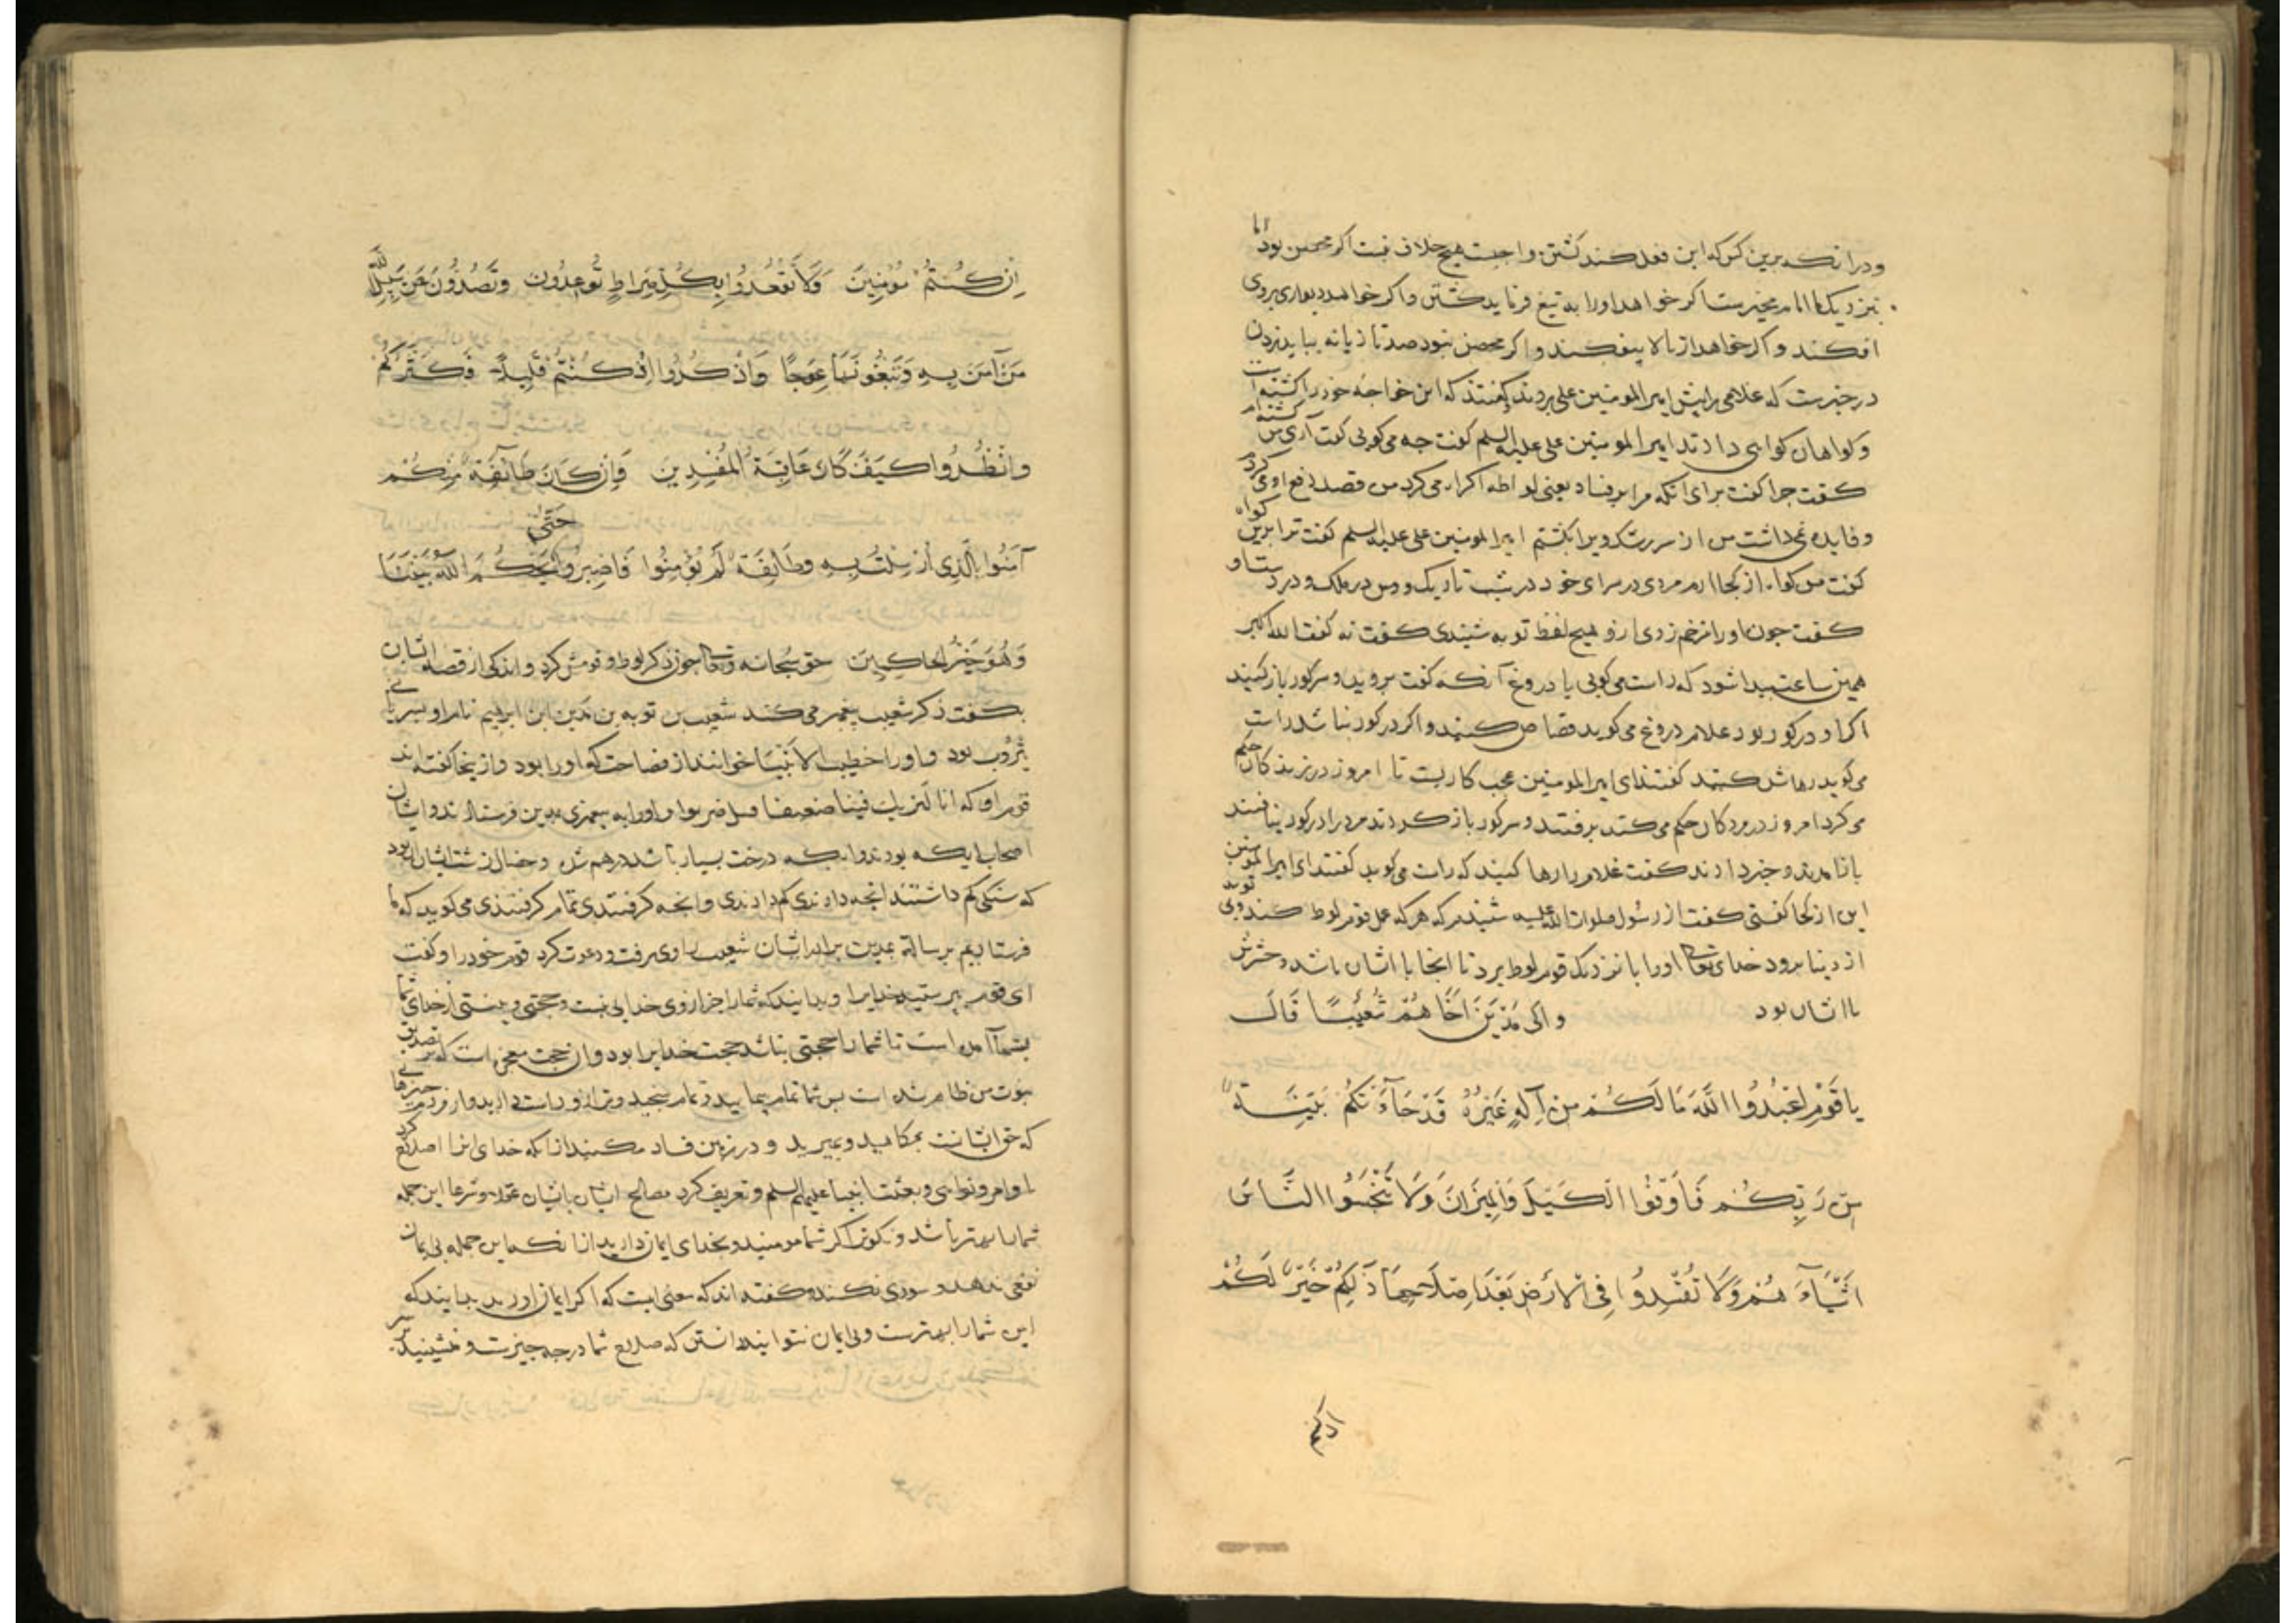 و درانکه برین کس که این فعل کند کشتن واجبست هیچ خلاف نیست اکر محصن بود اما
بنزدیک ما امام مخیرست اکر خواهد اورا به تیغ فرماید کشتن واکر خواهد دیواری بروی
افکند واکر خواهد از بالا بیفکند واکر محصن نبود صد تازیانه بباید زدن
در خبرست که غلامی را پیش امیرالمومنین علی بردند کفتند که این خواجهٔ خود را کشته است
وکواهان کواهی دادند امیرالمومنین علی علیه السلم کفت چه می کوئی کفت آری من کشته ام
کفت چرا کفت برای انکه مرا بر فساد یعنی لواطه اکراه می کرد من قصد دفع اوی کردم
وفایده نمی داشت من از سر رنکه ویرا بکشتم امیرالمومنین علی علیه السلم کفت ترا برین کواه
کفت من کواه از کجا ارم مردی در سرای خود در شب تاریک ومن در ملک و در دست او
کفت چون اورا زخم زدی ازو هیچ لفظ توبه شنیدی کفت نه کفت الله اکبر
همین ساعت پیدا شود که راست می کوئی یا دروغ آنکه کفت بروید وسر کور باز کنید
اکر او در کور بود غلام دروغ می کوید قصاص کنید واکر در کور نباشد راست
می کوید رهاش کنید کفتند ای امیرالمومنین عجب کاریست تا امروز در زندکان حکم
می کرد امروز در مردکان حکم می کند برفتند وسر کور باز کردند مرد را در کور نیافتند
باز امدند وخبر دادند کفت غلام را رها کنید که راست می کوید کفتند ای امیرالمومنین
این از کجا کفتی کفت از رسول صلوات الله علیه شنیدم که هرکه عمل قوم لوط کند وبی توبه
از دنیا برود خدای تعالی اورا با نزدیک قوم لوط برد تا انجا با ایشان باشد وحشرش
با ایشان بود والی مدین اخاهم شعیبا قال
یا قوم اعبدوا الله ما لکم من اله غیره قد جاءتکم بینة
من ربکم فاوفوا الکیل والمیزان ولا تبخسوا الناس
اشیاءهم ولا تفسدوا فی الارض بعد اصلاحها ذلکم خیر لکم
ان کنتم مؤمنین ولا تقعدوا بکل صراط توعدون وتصدون عن سبیل الله
من آمن به وتبغونها عوجا واذکروا اذ کنتم قلیلا فکثرکم
وانظروا کیف کان عاقبة المفسدین وان کان طائفة منکم
آمنوا بالذی ارسلت به وطائفة لم یؤمنوا فاصبروا حتی یحکم الله بیننا
وهو خیر الحاکمین حق سبحانه وتعالی چون ذکر لوط و قومش کرد واندکی از قصه ایشان
بکفت ذکر شعیب پیغمبر می کند شعیب بن توبه بن مدین ابن ابرهیم نام او بسریانی
یثروب بود و اورا خطیب الانبیا خوانند از فصاحت که اورا بود وازینجا کفته اند
قوم او که انا لنریک فینا ضعیفا و اورا به پیغمبری بمدین فرستادند وایشان
اصحاب ایکه بودند وایکه درخت بسیار باشد درهم شده وخصال زشت ایشان ان بود
که سنکی کم داشتند انچه دادندی کم دادندی وانچه کرفتندی تمام کرفتندی می کوید که ما
فرستادیم برسالة بمدین برادر ایشان شعیب را وی برفت ودعوت کرد قوم خودرا وکفت
ای قوم بپرستید خدایرا وبدانید که شمارا جز از وی خدایی نیست وحجتی وبینتی از خدای شما
بشما آمده است تا شمارا حجتی نباشد حجت خدایرا بود وان حجت معجز است که بر تصدیق
نبوت من ظاهر شده است پس شما تمام بپمایید وتمام بسنجید وترازو راست دارید واز مردم چیزهایی
که حق ایشانست بمکاهید و در زمین فساد مکنید ازانکه خدای انرا اصلاح کرد
باوامر ونواهی وبعثت انبیا علیهم السلم وتعریف کرد مصالح ایشان بایشان عقلا وشرعا این جمله
شمارا بهتر باشد ونکوتر اکر شما مومنید وبخدای ایمان دارید ازانکه این جمله بی ایمان
نفعی ندهد و سودی نکند وکفته اند که معنی انست که اکر ایمان اورید بدانید که
این شمارا بهترست وبی ایمان نتوانید دانستن که صلاح شما در چه چیزست ومنشینید بر سر